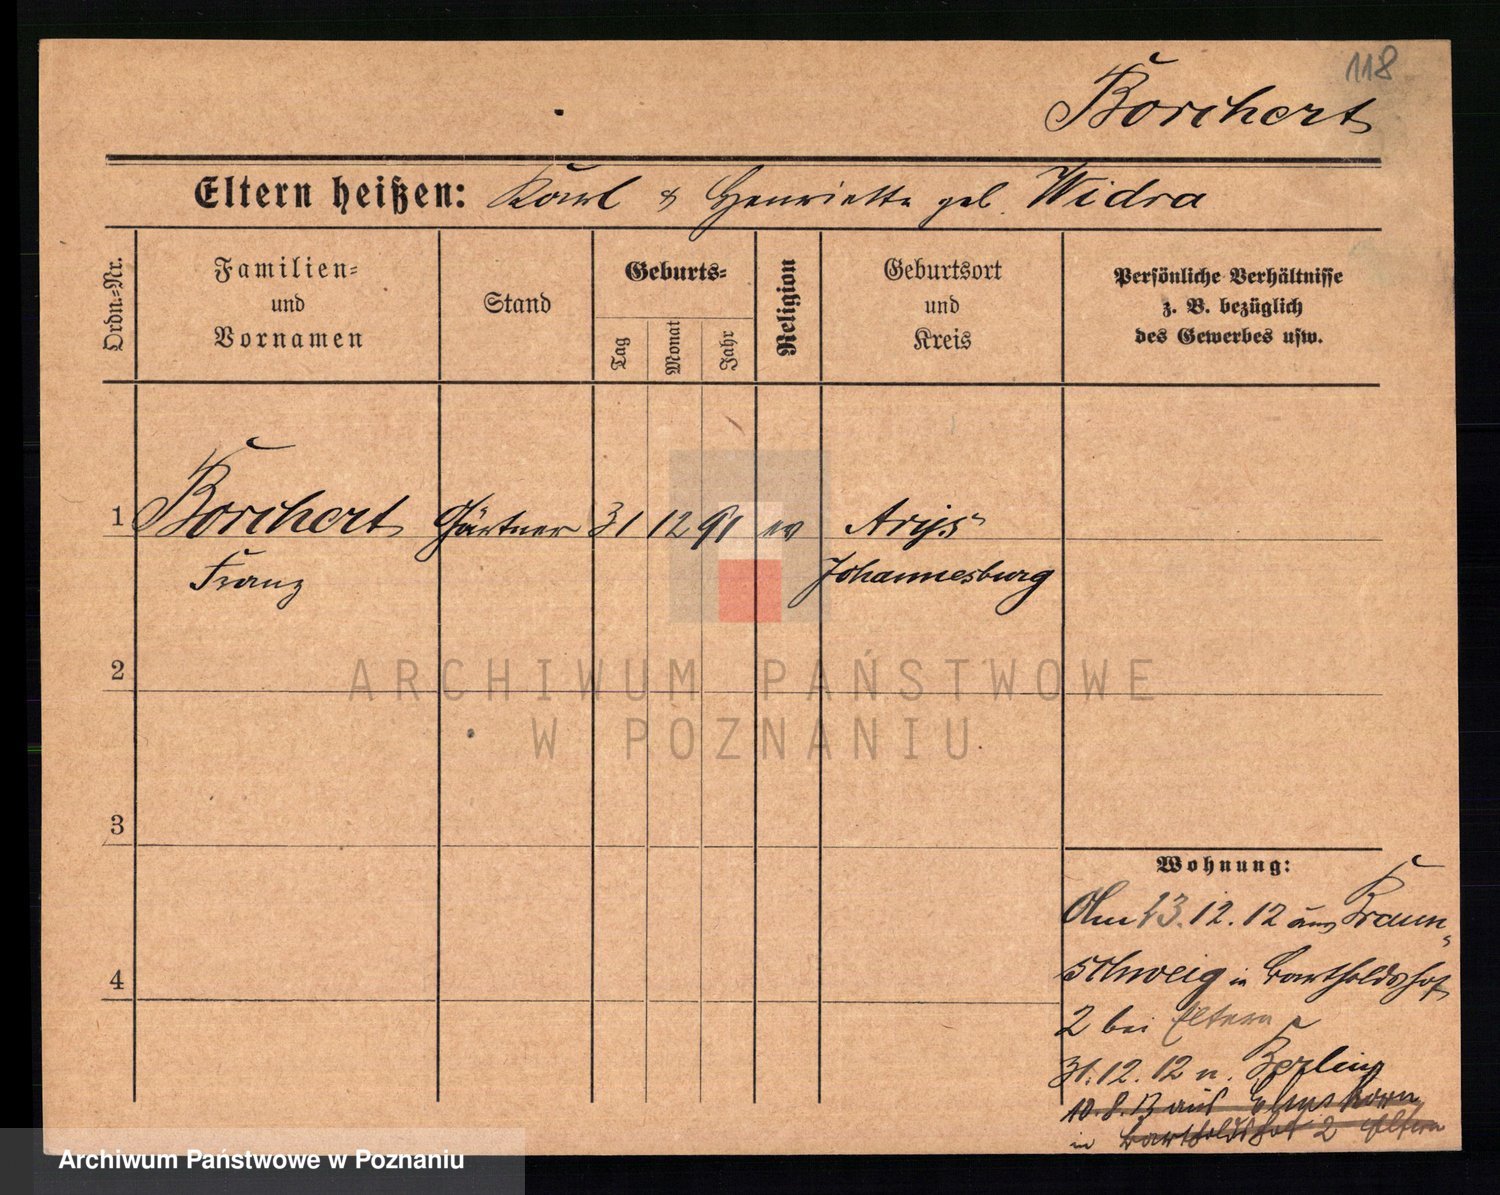 118
Borchert
Eltern heißen: Karl & Henriette geb. Widra
Ordn.-Nr.
Familien-
und
Vornamen
Stand
Geburts-
Tag
Monat
Jahr
Religion
Geburtsort
und
Kreis
Persönliche Verhältnisse
z. B. bezüglich
des Gewerbes usw.
1 Borchert Gärtner 31 12 91 ev Arys
Franz Johannesburg
2
ARCHIWUM PAŃSTWOWE
W POZNANIU
3
Wohnung:
Am 23.12.12 aus Braun-
schweig in Bartholdshof
4
2 bei Eltern
31.12.12 n. Berlin
10.8.13 aus Elmshorn
in Bartholdshof 2 Eltern
Archiwum Państwowe w Poznaniu